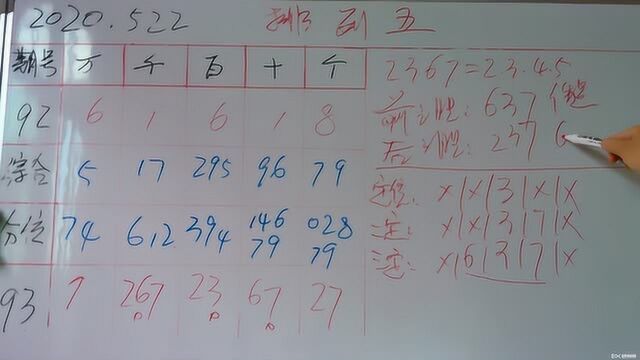 2020.5.22 排列五
期号 万 千 百 十 个
92 6 1 6 1 8
综合 5 17 295 96 79
分位 74 612 394 146 028
79 79
93 7 267 23 67 27
2367=23.4.5
前 胆: 637
后 胆: 237 6
定位: X|X|3|X|X
定: X|X|3|7|X
定: X|6|3|7|X